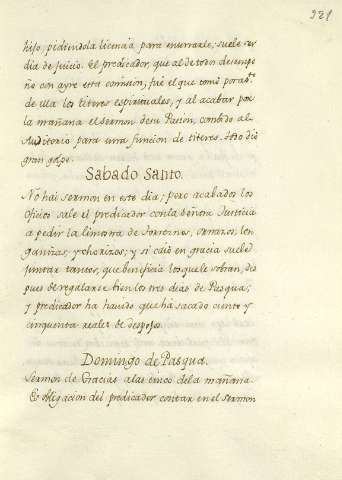 321
hijo, pidiendola licencia para enterrarle; suele ser
dia de juicio. El predicador, que al de todn desempe
ño con ayre esta comision, fue el que tomò por ad.te
de ella los titeres espirituales, y al acabar por
la mañana el sermon de su Pasion, combido al
Auditorio para una funcion de titeres. todo dio
gran golpe.
Sabado Santo.
No hai sermon en este dia; pero acabados los
Oficios sale el predicador con la Señora Justicia
a pedir la limosna de torreznos, ornazos, lon
ganizas, y chorizos; y si caiò en gracia suele
juntar tantos, que beneficia los que le sobran, des
pues de regalarse bien los tres dias de Pasqua;
y predicador ha havido que ha sacado ciento y
cinquenta reales de despojos.
Domingo de Pasqua.
Sermon de Gracias a las cinco de la mañana.
Es obligacion del predicador contar en el sermon